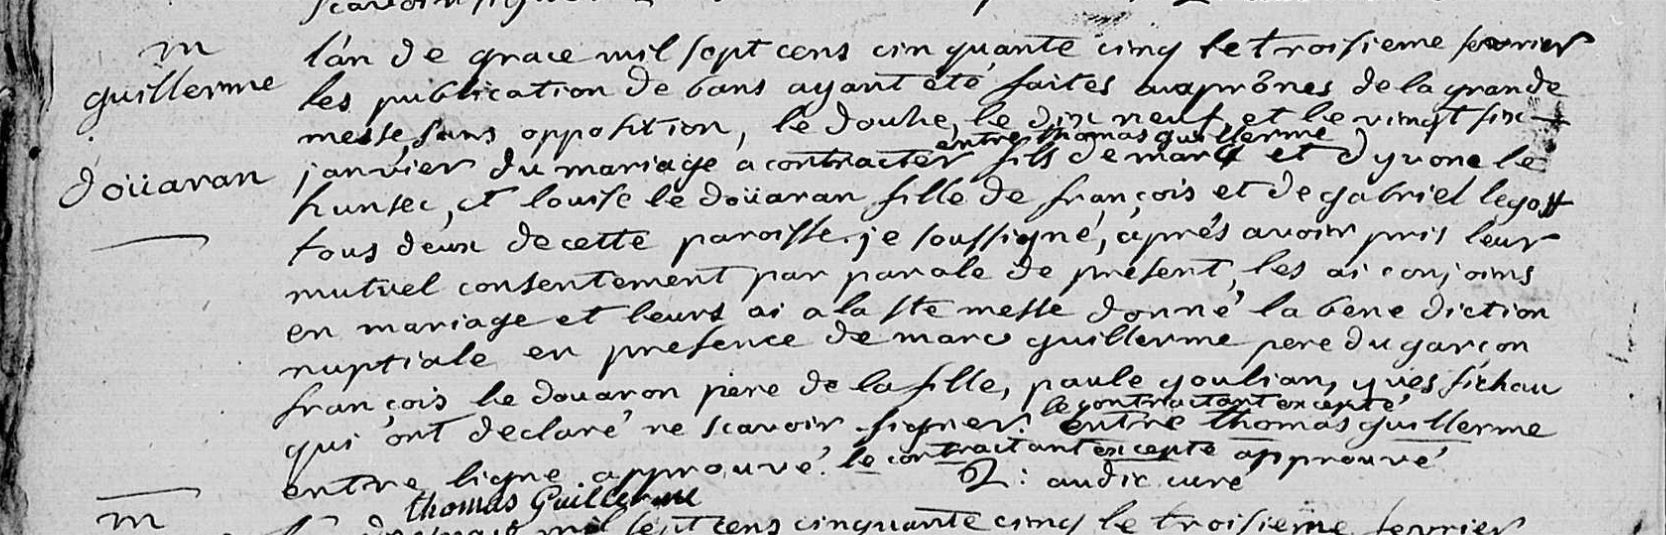 m
guillerme
doüaran
l'an de grace mil sept cens cinquante cinq le troisieme fevrier
les publication de bans ayant eté faites auxprônes de la grande
messe, sans opposition, le douhe, le dix neuf, et le vingt six
entre thomas guillerme
janvier du mariage a contracter fils de marc et d'yvone le
hunsec, et louise le doüaran fille de françois et de gabriel legoff
tous deux de cette paroisse. je soussigné, aprés avoir pris leur
mutuel consentement par parole de présent, les ai conjoins
en mariage et leurs ai a la ste messe donné la benediction
nuptiale en presence de marc guillerme pere du garçon
françois le douaron pere de la fille, paule goulian, yves fichau
le contractant excepté
qui ont declaré ne scavoir signer: entre thomas guillerme
entre ligne approuvé. le contractant excepte approuvé
thomas Guillerme
: audic curé
m
mil sept cens cinquante cinq le troisieme fevrier